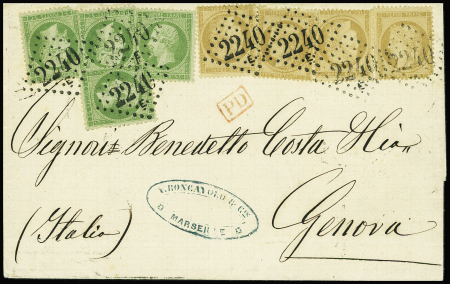 2240 2240 2240 2240 2240
2240 2240
PD
Signor Benedetto Costa
V. RONCAYOLO & CIE
MARSEILLE
(Italie) Genova